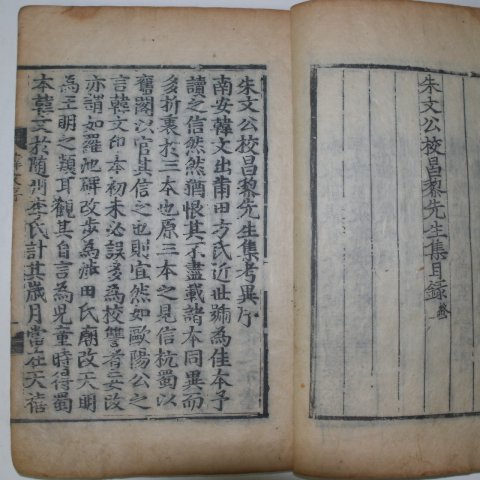 朱文公校昌黎先生集目録
朱文公校昌黎先生集考異序
南安韓文出莆田方氏近世號為佳本予
讀之信然然猶恨其不盡載諸本同異而
多折衷於三本也原三本之見信杭蜀以
舊閣以官其信之也則宜然如歐陽公之
言韓文印本初未必誤多為校讐者妄改
亦謂如羅池碑改步為涉田氏廟改天明
為王明之類耳觀其自言為兒童時得蜀
本韓文於隨州李氏計其歲月當在天禧